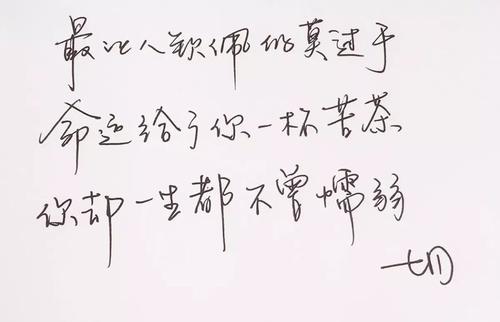 最让人钦佩的莫过于
命运给了你一杯苦茶
你却一生都不曾懦弱
七月